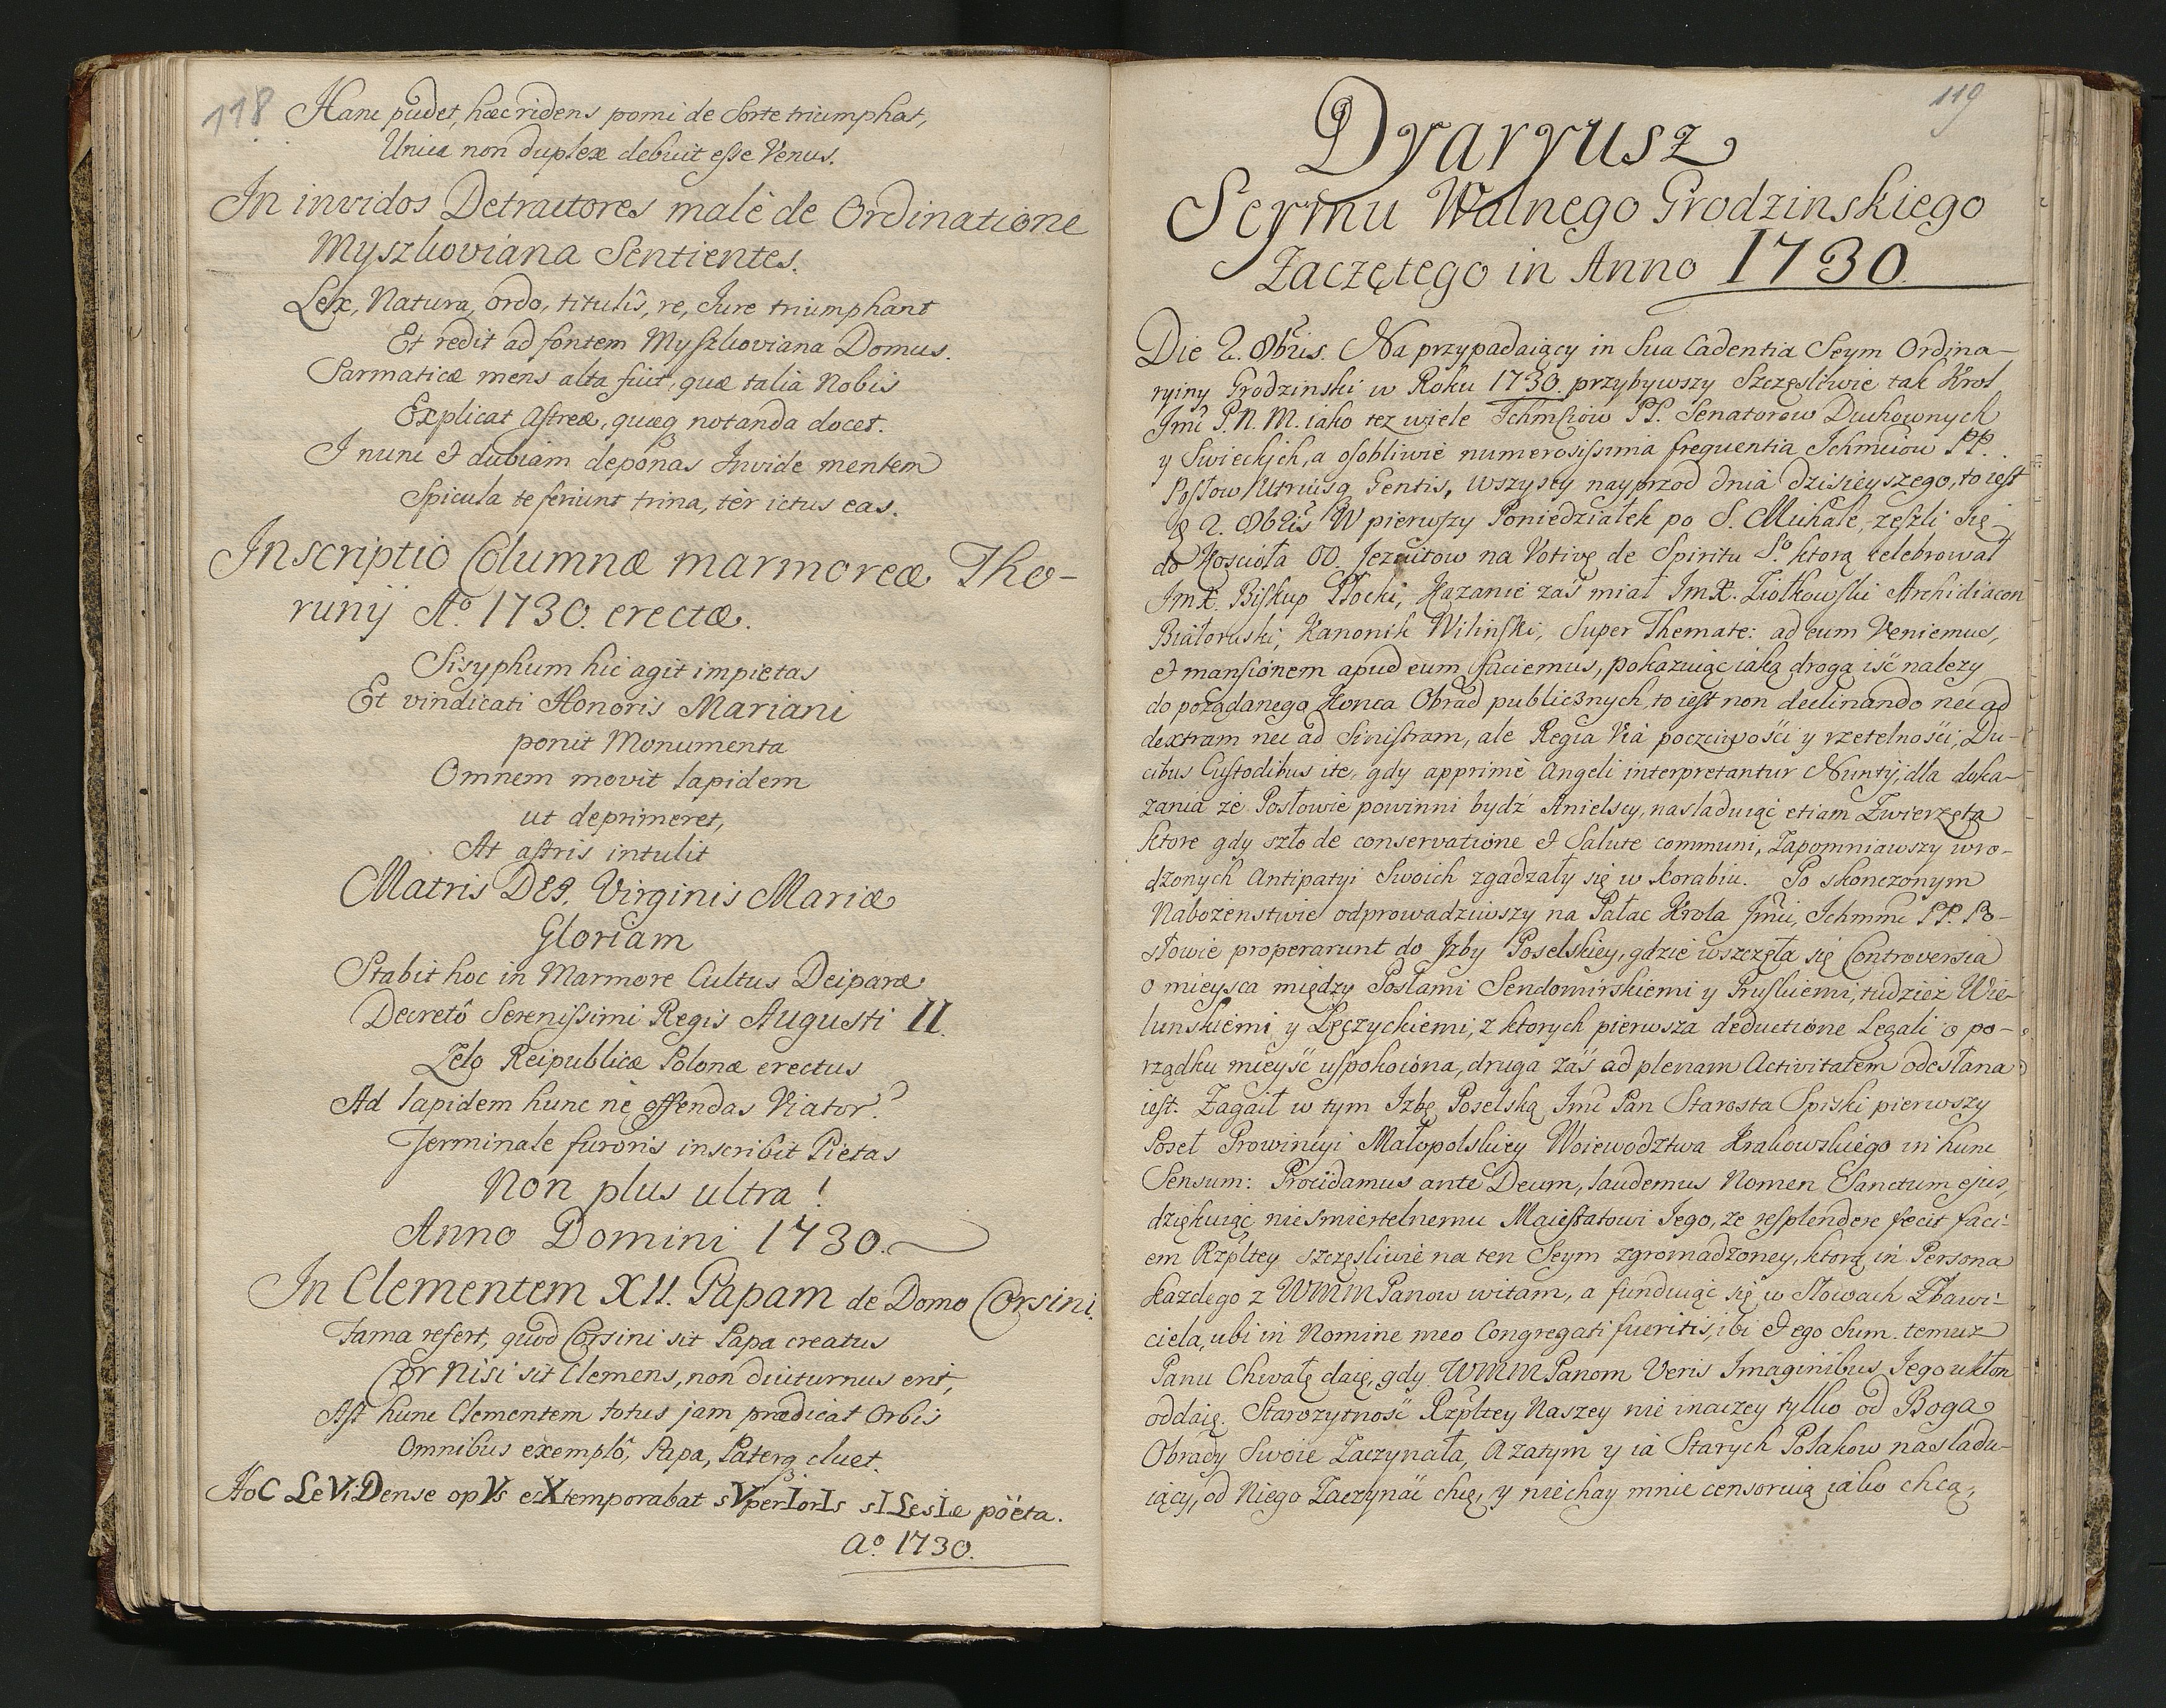 118
Hanc pudet, hæc ridens pomi de Sorte triumphat,
Unica non duplex debuit esse Venus.
In invidos Detractores malè de Ordinatione
Myszkoviana Sentientes.
Lex, Natura, ordo, titulîs, re, Jure triumphant
Et redit ad fontem Myszkoviana Domus.
Sarmaticæ mens alta fuit, quæ talia Nobis
Explicat Astreæ, quæq notanda docet.
I nunc et dubiam deponas Invide mentem
Spicula te feriunt trina, tèr ictus eas.
Inscriptio Columnæ marmoreæ Tho-
runij Aº 1730. erectæ.
Sisyphum hic agit impietas
Et vindicati Honoris Mariani
ponit Monumenta
Omnem movit lapidem
ut deprimeret,
At astris intulit
Matris DEI. Virginis Mariæ
Gloriam
Stabit hoc in Marmore Cultus Deiparæ
Decretô Serenissimi Regis Augusti II.
Zelo Reipublicæ Polonæ erectus
Ad lapidem hunc nè offendas Viator?
Terminale furoris inscribit Pietas
Non plus ultra!
Anno Domini 1730.
In Clementem XII. Papam de Domo Corsini.
Fama refert, quod Corsini sit Papa creatus
Cor nisi sit Clemens, non diuturnus erit,
Ast hunc Clementem totus jam prædicat Orbis
Omnibus exemplô, Papa, Paterq cluet.
HoC LeViDense opVs eXtemporabat sVperIorIs sILesIæ pöeta.
Aº. 1730.
119
Dyaryusz
Seymu Walnego Grodzinskiego
Zaczętego in Anno 1730.
Die 2. 8bris. Na przypadaiący in Sua Cadentia Seym Ordina-
ryiny Grodzinski w Roku 1730. przybywszy Szczęsliwie tak Krol
Jmć P. N. M. iako tez wiele Ichmciow PP. Senatorow Duchownych
y Swieckich, a osobliwie numerosissima frequentia Ichmciow PP.
Posłow Utriusq Gentis, wszyscy nayprzod dnia dzisieyszego, to iest
2. 8bris W pierwszy Poniedziałek po S. Michale, zeszli się
do Koscioła OO. Jezuitow na Votivę de Spiritu Sº. ktorą celebrował
JmX. Biskup Płocki, Kazanie zaś miał JmX. Ziołkowski Archidiacon
Białoruski, Kanonik Wilinski, Super Themate: ad eum Veniemus,
et mansionem apud eum faciemus, pokazuiąc iaką drogą iść nalezy
do pożądanego Konca Obrad publicznych, to iest non declinando nec ad
dextram nec ad Sinistram, ale Regia Via poczciwości y rzetelności, Du-
cibus Custodibus ite, gdy apprimè Angeli interpretantur Nuntij, dla doka-
zania że Posłowie powinni bydź Anielscy, nasladuiąc etiam Zwierzęta
ktore gdy szło de conservatione et Salute communi, Zapomniawszy wro-
dzonych Antipatyi Swoich zgadzały się w korabiu. Po skonczonym
Nabożenstwie odprowadziwszy na Pałac Krola Jmći, Ichmmć PP. Po-
słowie properarunt do Izby Poselskiey, gdzie wszczęła się Controversia
o mieysca między Posłami Sendomirskiemi y Pruskiemi, tudzież Wie-
lunskiemi y Łęczyckiemi, z ktorych pierwsza deductione Legali o po-
rządku mieyść uspokoiona, druga zaś ad plenam Activitatem odesłana
iest. Zagaił w tym Izbę Poselską Jmć Pan Starosta Spiski pierwszy
Poseł Prowincyi Małopolskiey Woiewodztwa Krakowskiego in hunc
Sensum: Procidamus ante Deum, laudemus Nomen Sanctum ejus,
dziękuiąc niesmiertelnemu Maiestatowi Jego, ze resplendere fecit faci-
em Rzpltey szczęsliwie na ten Seym zgromadzoney, ktorą in Persona
kazdego z WMM Panow witam, a funduiąc się w Słowach Zbawi-
ciela, ubi in Nomine meo Congregati fueritis, ibi et ego Sum. temuz
Panu Chwałę daię, gdy WMM Panom Veris Imaginibus Jego ukłon
oddaię. Starożytność Rzpltey Naszey nie inaczey tylko od Boga
Obrady Swoie Zaczynała, A zatym y ia Starych Polakow nasladu-
iący, od Niego Zaczynać chcę, y niechay mnie censoruią iako chcą,